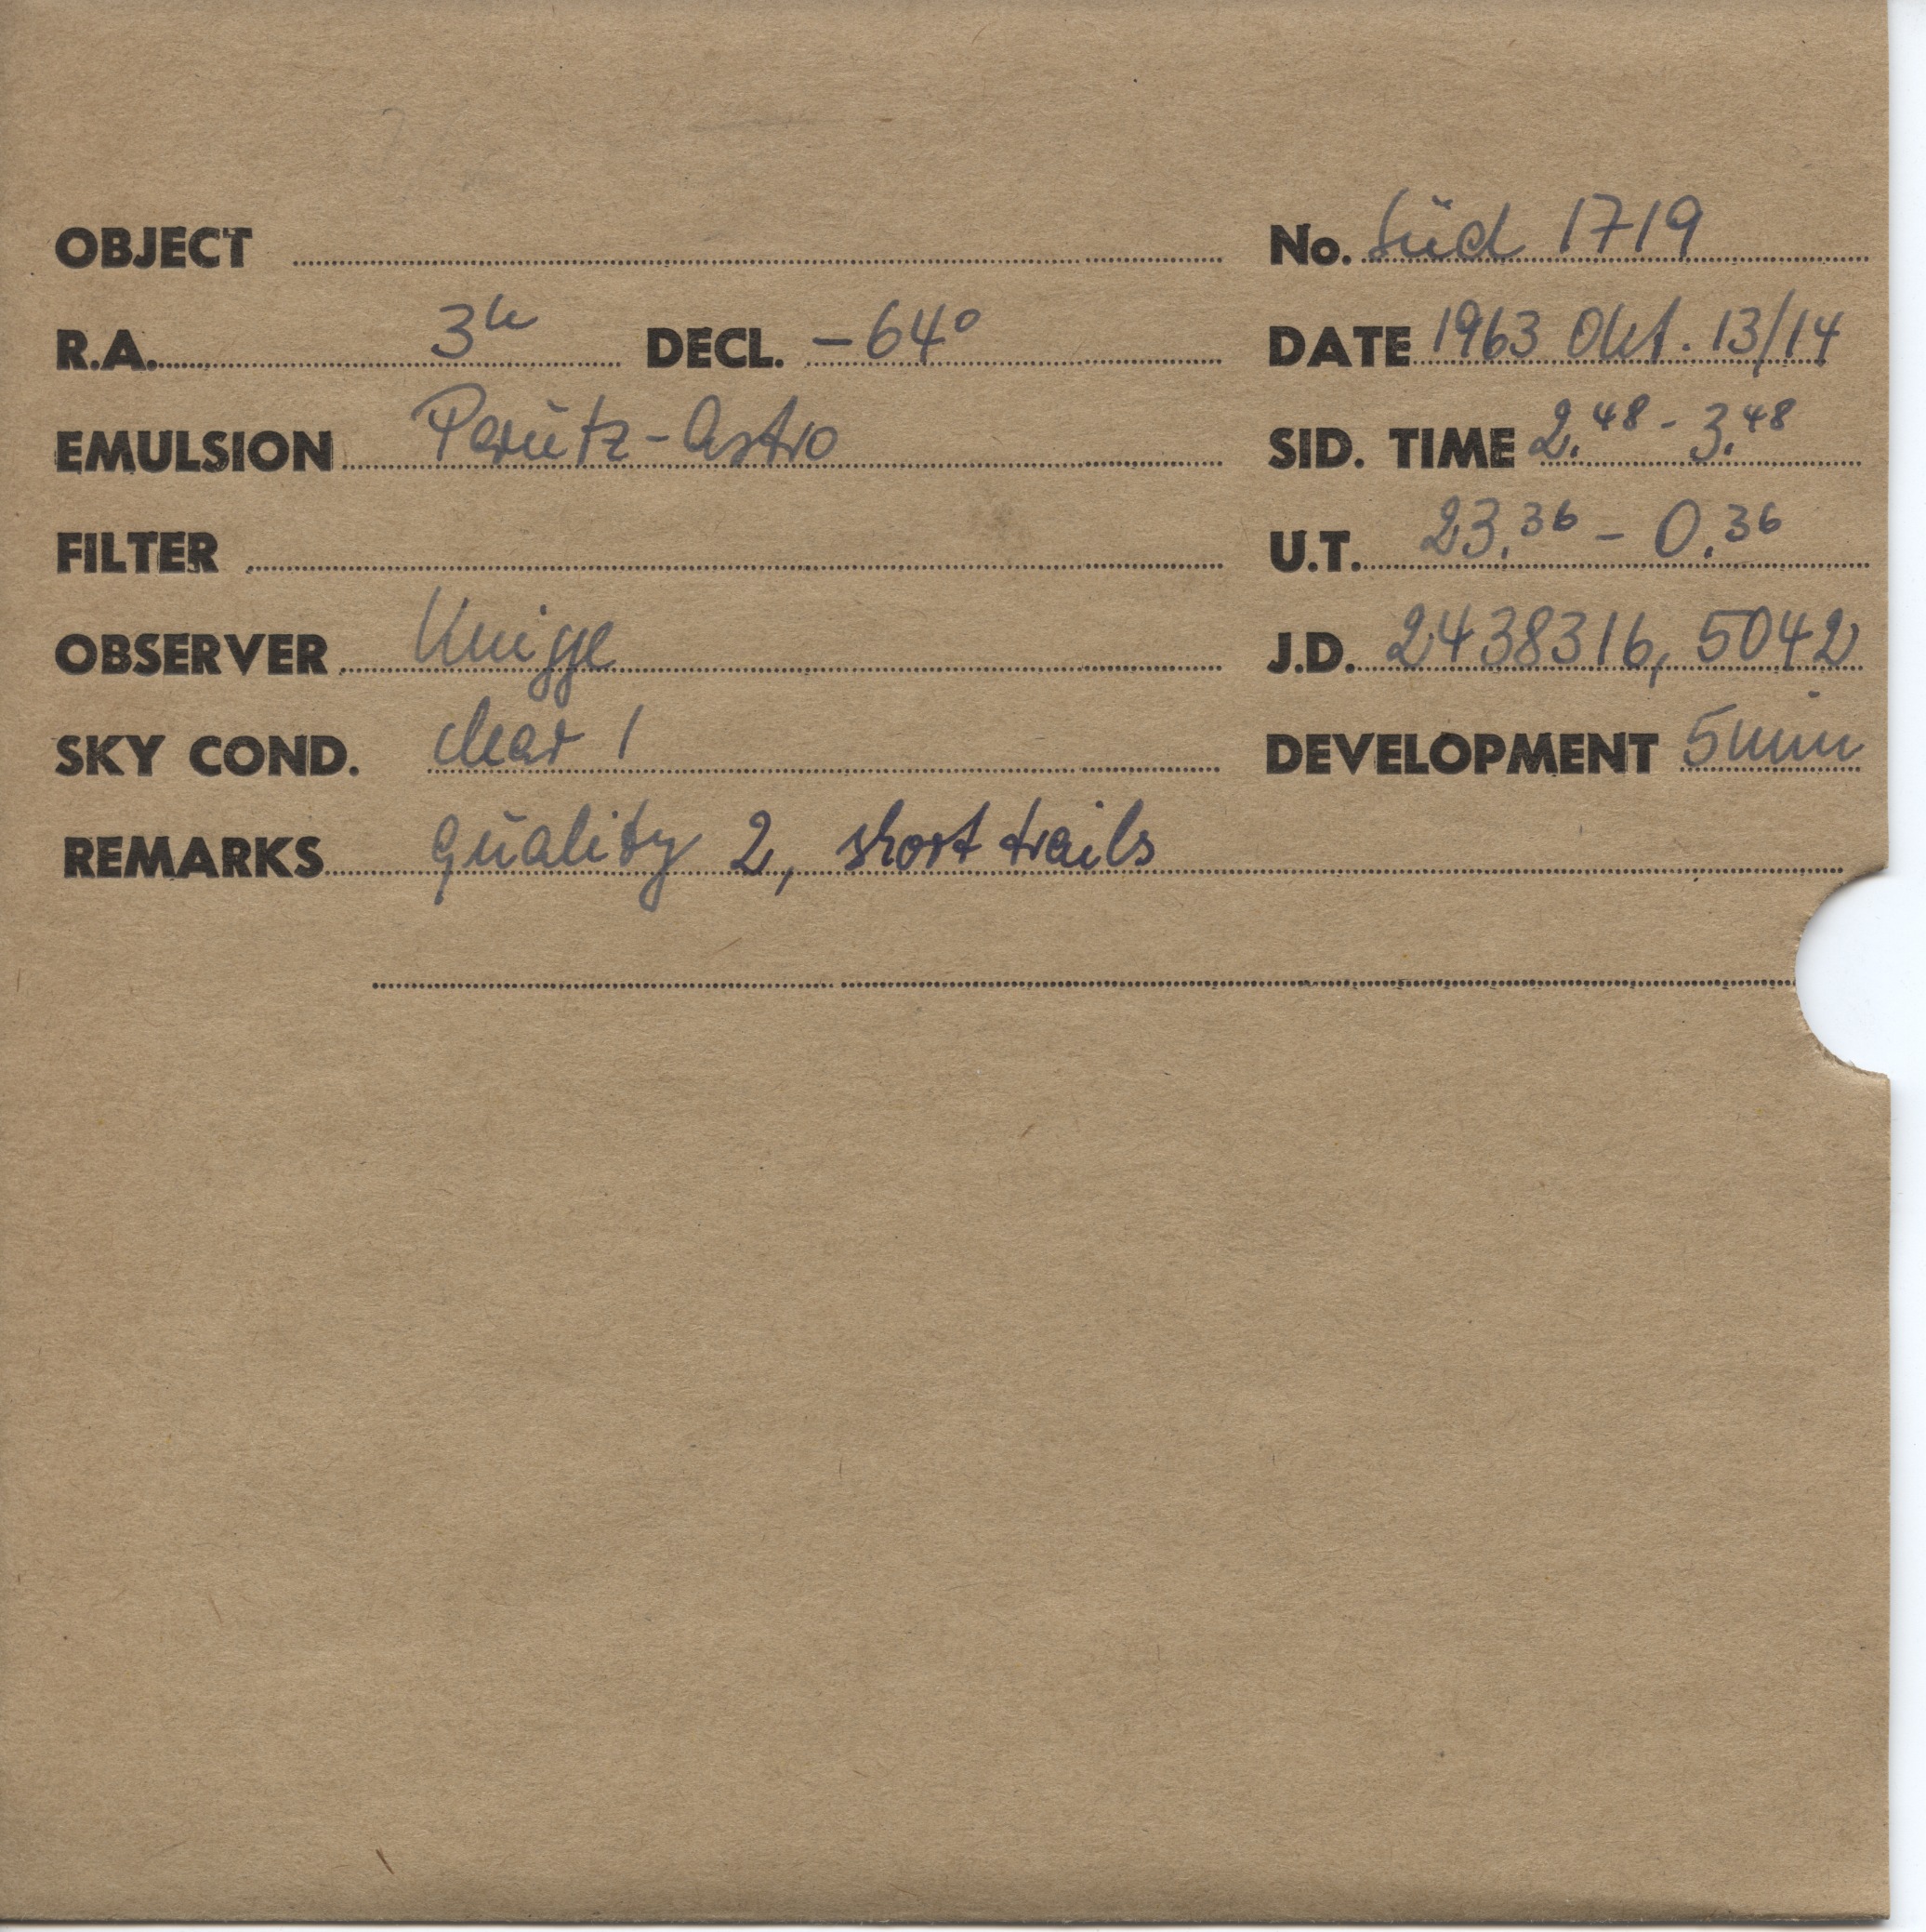 OBJECT No. Süd 1719
R.A. 3h DECL. -64° DATE 1963 Okt. 13/14
EMULSION Perutz-Astro SID. TIME 2.48 - 3.48
FILTER U.T. 23.36 - 0.36
OBSERVER Knigge J.D. 2438316,5042
SKY COND. clear 1 DEVELOPMENT 5 min
REMARKS quality 2, short trails